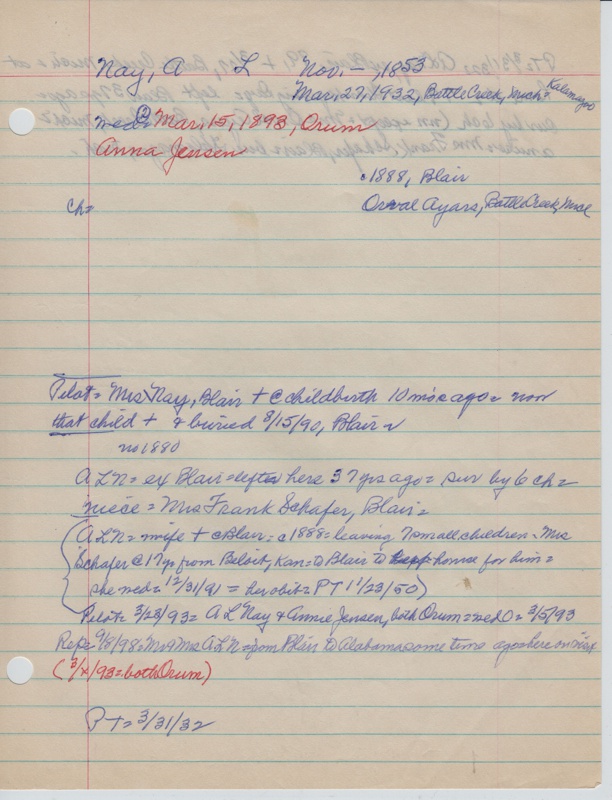 Nay, A L Nov. -, 1853
Mar, 27, 1932, Battle Creek, Mich = Kalamazoo
med = ② Mar, 15, 1893, Orum
Anna Jensen
c1888, Blair
ch = Orval Ayars, Battle Creek, Mich
Pilot = Mrs Nay, Blair + @ childbirth 10 mos ago = now
that child + & buried 8/15/90, Blair =
no 1880
A L N = ex Blair = left here 37 yrs ago = sur by 6 ch =
niece = Mrs Frank Schafer, Blair =
(A L N = wife + @ Blair = c1888 = leaving 7 small children = Mrs
Schafer @ 17 yr from Beloit, Kan = to Blair to keep house for him =
she med = 12/31/91 = her obit = PT 11/23/50)
Pilot = 3/23/93 = A L Nay & Annie Jensen, both Orum = med = 3/5/93
Rep = 9/8/98 = Mr & Mrs A L N = from Blair to Alabama some time ago = here on
(3/x/93 = both Orum)
PT = 3/31/32